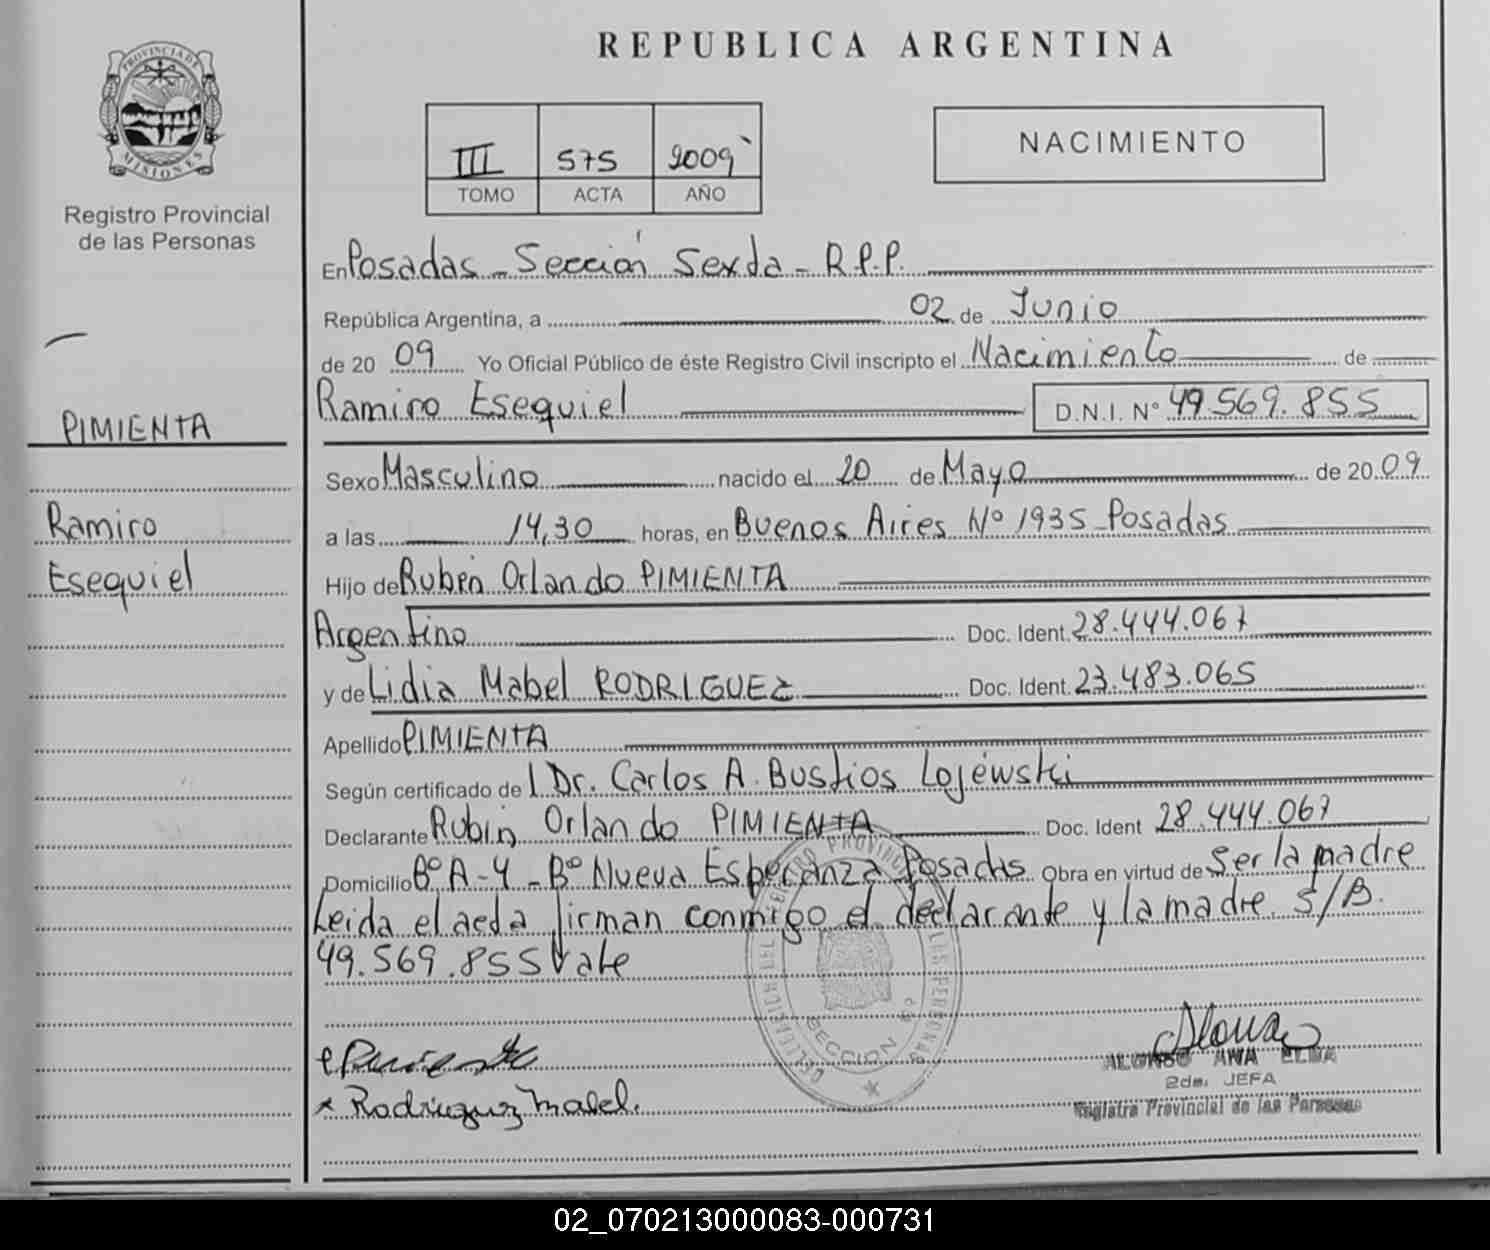 PROVINCIA DE
MISIONES
Registro Provincial
de las Personas
PIMIENTA
Ramiro
Esequiel
REPUBLICA ARGENTINA
III 575 2009
TOMO ACTA AÑO
NACIMIENTO
En Posadas - Sección Sexta - R.P.P.
República Argentina, a 02 de Junio
de 20 09 Yo Oficial Público de éste Registro Civil inscripto el Nacimiento de
Ramiro Esequiel D.N.I. Nº 49.569.855
Sexo Masculino nacido el 20 de Mayo de 20 09
a las 14,30 horas, en Buenos Aires Nº 1935 Posadas
Hijo de Rubén Orlando PIMIENTA
Argentino Doc. Ident. 28.444.067
y de Lidia Mabel RODRIGUEZ Doc. Ident. 23.483.065
Apellido PIMIENTA
Según certificado de l Dr. Carlos A. Bustios Lojewski
Declarante Rubén Orlando PIMIENTA Doc. Ident 28.444.067
Domicilio Bº A-4 - Bº Nueva Esperanza Posadas Obra en virtud de Ser la madre
Leida el acta firman conmigo el declarante y la madre. S/B.
49.569.855 Vale
SECCION 6ª
Rodriguez Mabel.
ALONSO ANA ELBA
2da. JEFA
Registro Provincial de las Personas
02_070213000083-000731